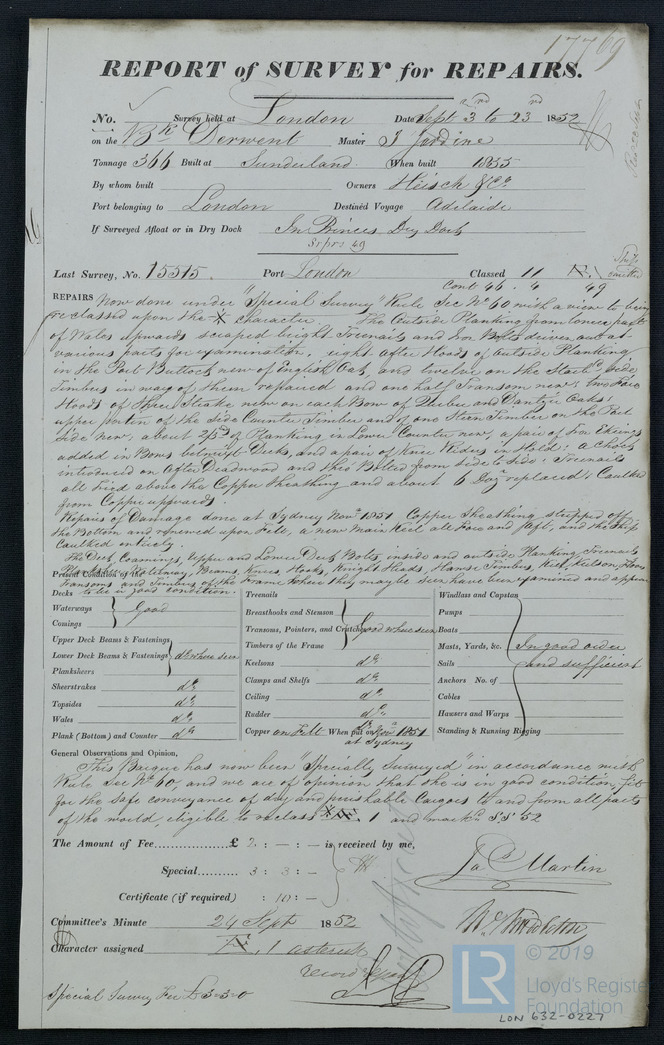 17769
REPORT of SURVEY for REPAIRS.
No. Survey held at London Date Sept 3rd to 23rd 1852
on the Bk Derwent Master J Jardine
Tonnage 366 Built at Sunderland When built 1835
By whom built Owners Heisch & Co
Port belonging to London Destined Voyage Adelaide
If Surveyed Afloat or in Dry Dock In Princes Dry Dock
Last Survey, No. 15515. Port London Classed 11
Cont 46. 4 49
REPAIRS Now done under "Special Survey" Rule Sec No 60 with a view to being
reclassed upon the character. The Outside Planking from lower part
of Wales upwards scraped bright Treenails and Iron Bolts driven out at
various parts for examination, eight after Hoods of outside Planking
in the Port Buttock new of English Oak, and twelve on the Starbd Side,
Timbers in way of them repaired and one half Transom new; two Fore
Hoods of three Strake new on each Bow of Quebec and Dantzic Oak;
upper portion of the Side Counter Timber and of one Stern Timber on the Port
Side New; about 2/3ds of Planking in Lower Counter new, a pair of Iron
added in Bows betwixt Decks, and a pair of Knee Riders in Hold; a Chock
introduced on After Deadwood and thro Bolted from side to side; Treenails
all tried above the Copper Sheathing and about 6 Doz replaced; Caulked
from Copper upwards.
Repairs of Damage done at Sydney Novr 1851 Copper Sheathing stripped off
the Bottom and renewed upon Felt, a new Main Keel all Fore and Aft, and the Ship
Caulked entirely.
The Deck, Coamings, Upper and Lower Deck Bolts, inside and outside Planking Treenails
Beams, Knees, Hooks, Knight Heads, Hawse Timbers, Keel, Kelson, Floors
Transoms and Timbers of the Frame where they may be seen have been examined and appear
Present Condition of the
Decks to be in good condition.
Waterways Good
Comings
Upper Deck Beams & Fastenings
Lower Deck Beams & Fastenings do where seen
Planksheers
Sheerstrakes do
Topsides do
Wales do
Plank (Bottom) and Counter do
Treenails
Breasthooks and Stemson
Transoms, Pointers, and Crutches Good where seen
Timbers of the Frame
Keelsons do
Clamps and Shelfs do
Ceiling do
Rudder do
Copper on Felt When put on Novr 1851
at Sydney
Windlass and Capstan
Pumps
Boats
Masts, Yards, &c. In good order
Sails and sufficient
Anchors No. of
Cables
Hawsers and Warps
Standing & Running Rigging
General Observations and Opinion,
This Barque has now been "Specially Surveyed" in accordance with
Rule Sec No 60, and we are of opinion that she is in good condition, fit
for the safe conveyance of dry and perishable Cargoes to and from all parts
of the world, eligible to reclass 1 and markd SS 52
The Amount of Fee £ 2 : — : — is received by me,
Special 3 : 3 : —
Certificate (if required) : 10 : —
Jas Martin
Committee's Minute 24 Sept 1852
Wm Middleton
Character assigned 1 asterisk
Special Survey Fee £3-3-0
© 2019
LR
Lloyd's Register
Foundation
LON 632-0227